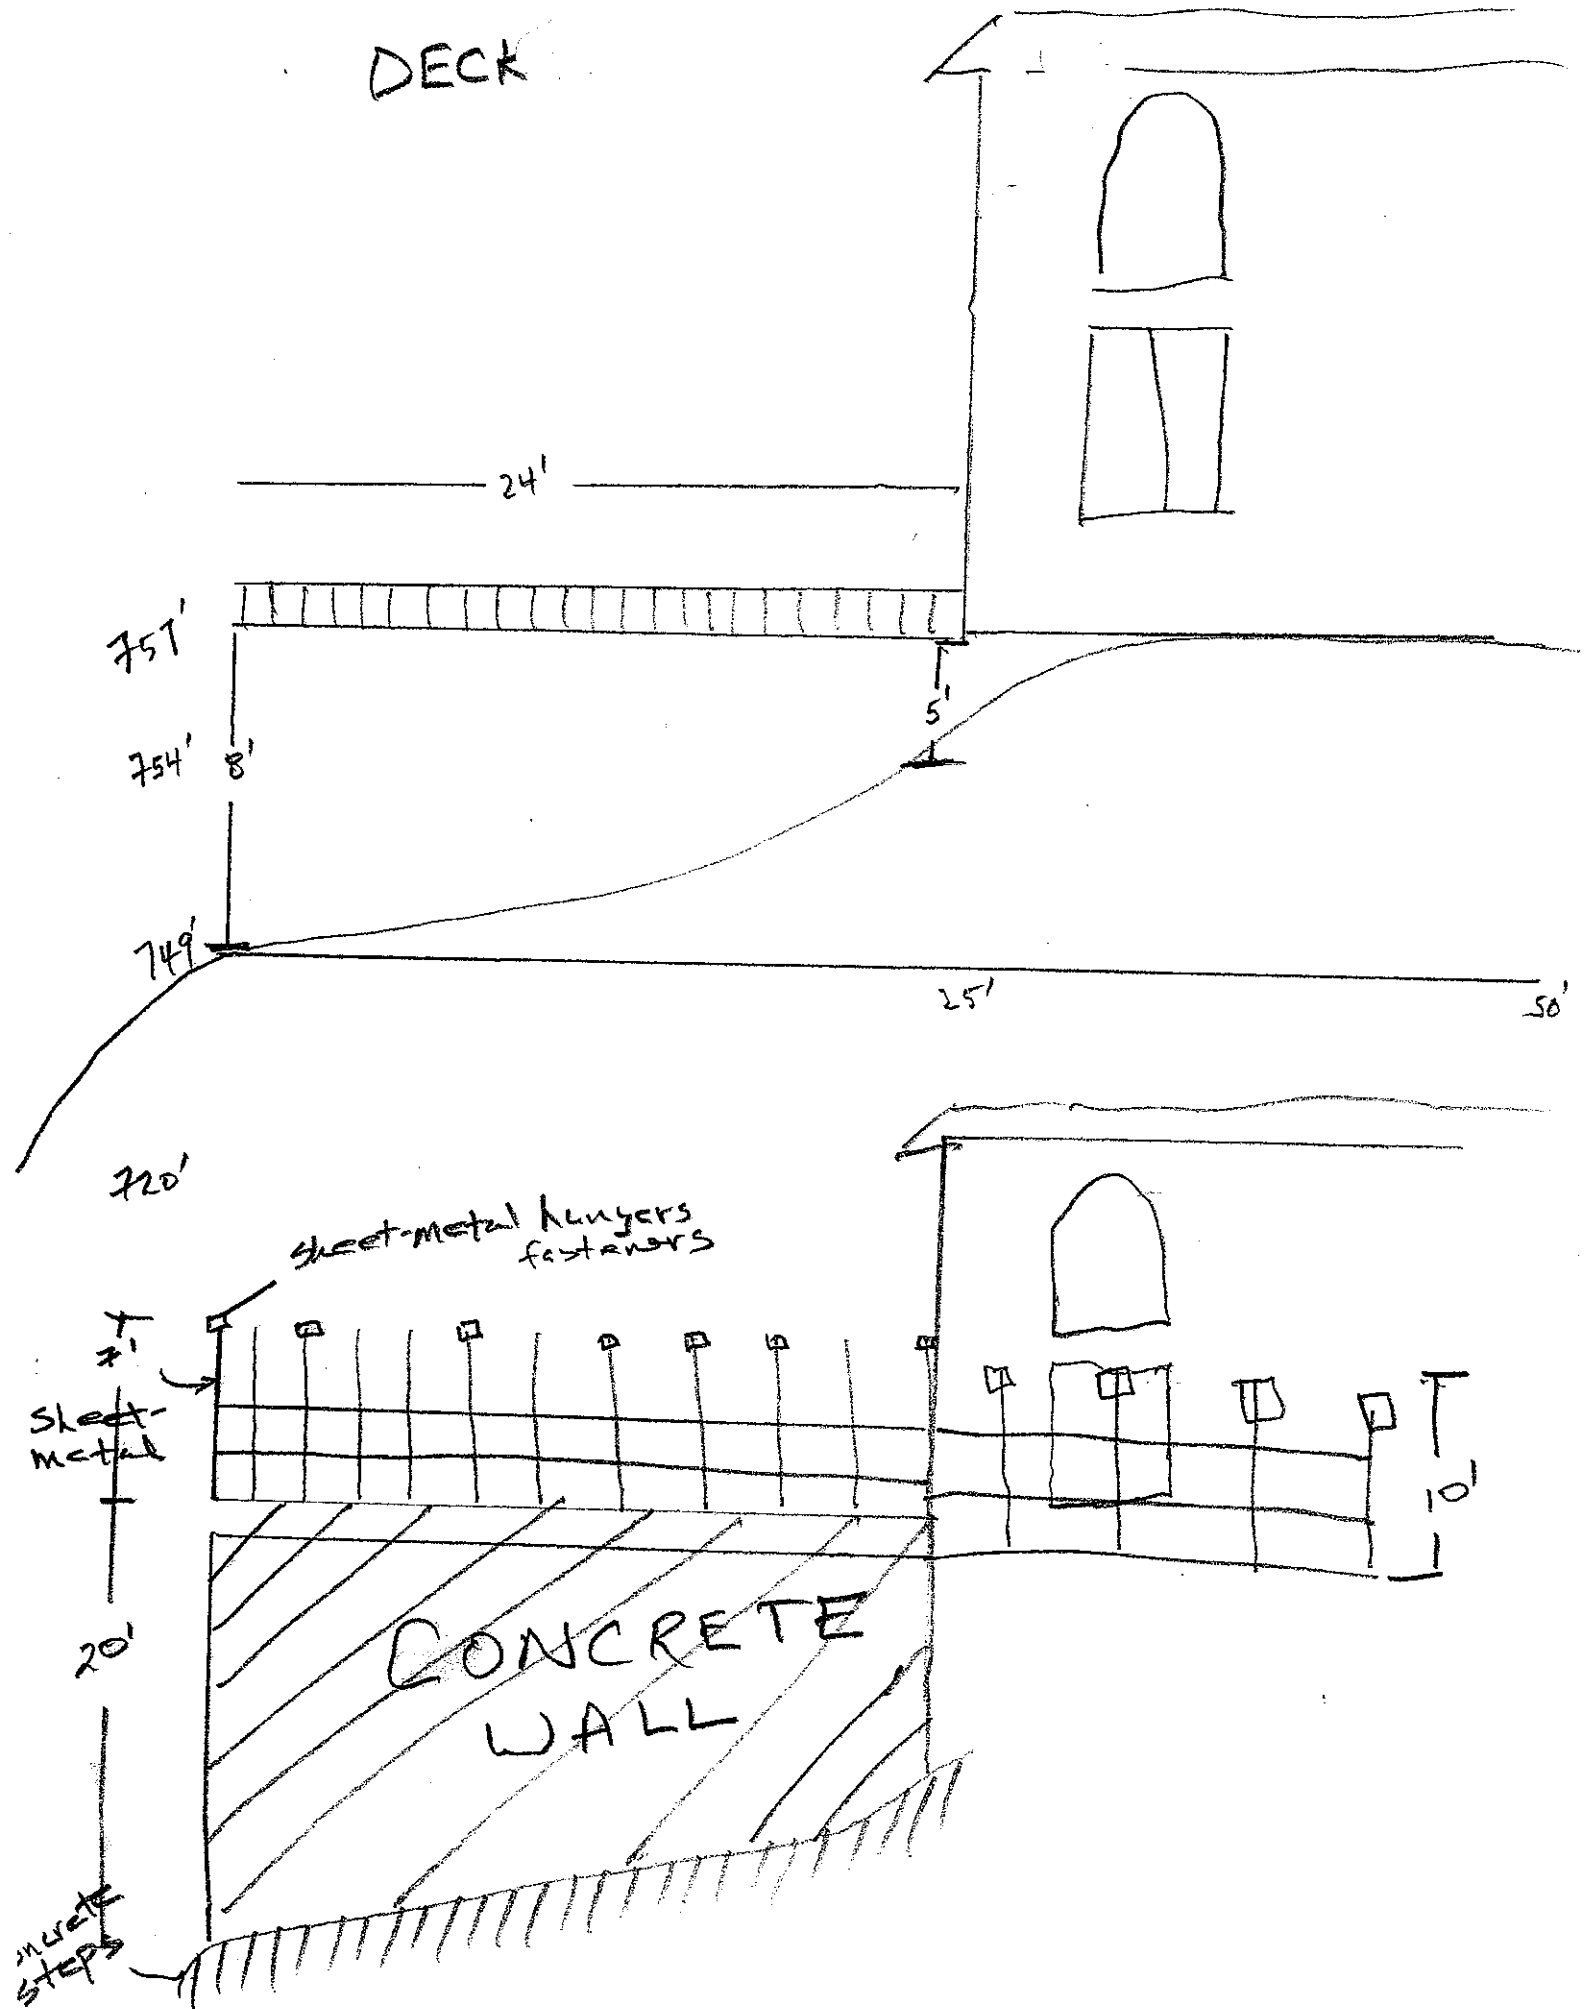 DECK
24'
757'
5'
754'
8'
749'
25'
50'
720'
sheet-metal hungers
fasteners
7'
sheet-
metal
10'
20'
CONCRETE
WALL
ncrete
steps